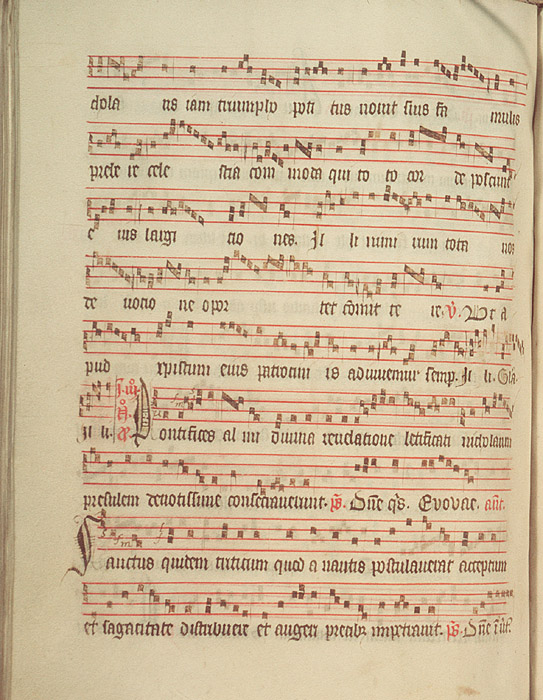 dola tis iam triumpho poti tus novit suis fa mulis
prebe re cele stia com moda qui to to cor de poscunt
e ius largi tio nes. Il li nimi rum tota nos
de uocio ne opor tet cōmit te re. V. Ut a
pud xpistum eius patrociniis adiuvemur semp. Il li. Gla.
Il li. Pontifices al mi diuina reuelatione letificati nicholaum
presulem deuotissime consecrauerunt. ps. Dñe qs. Evovae. ant.
Sanctus quidem triticum quod a nautis postulauerat acceptum
et sagacitate distribuere et augeri precibz impetrauit. ps. Dñe